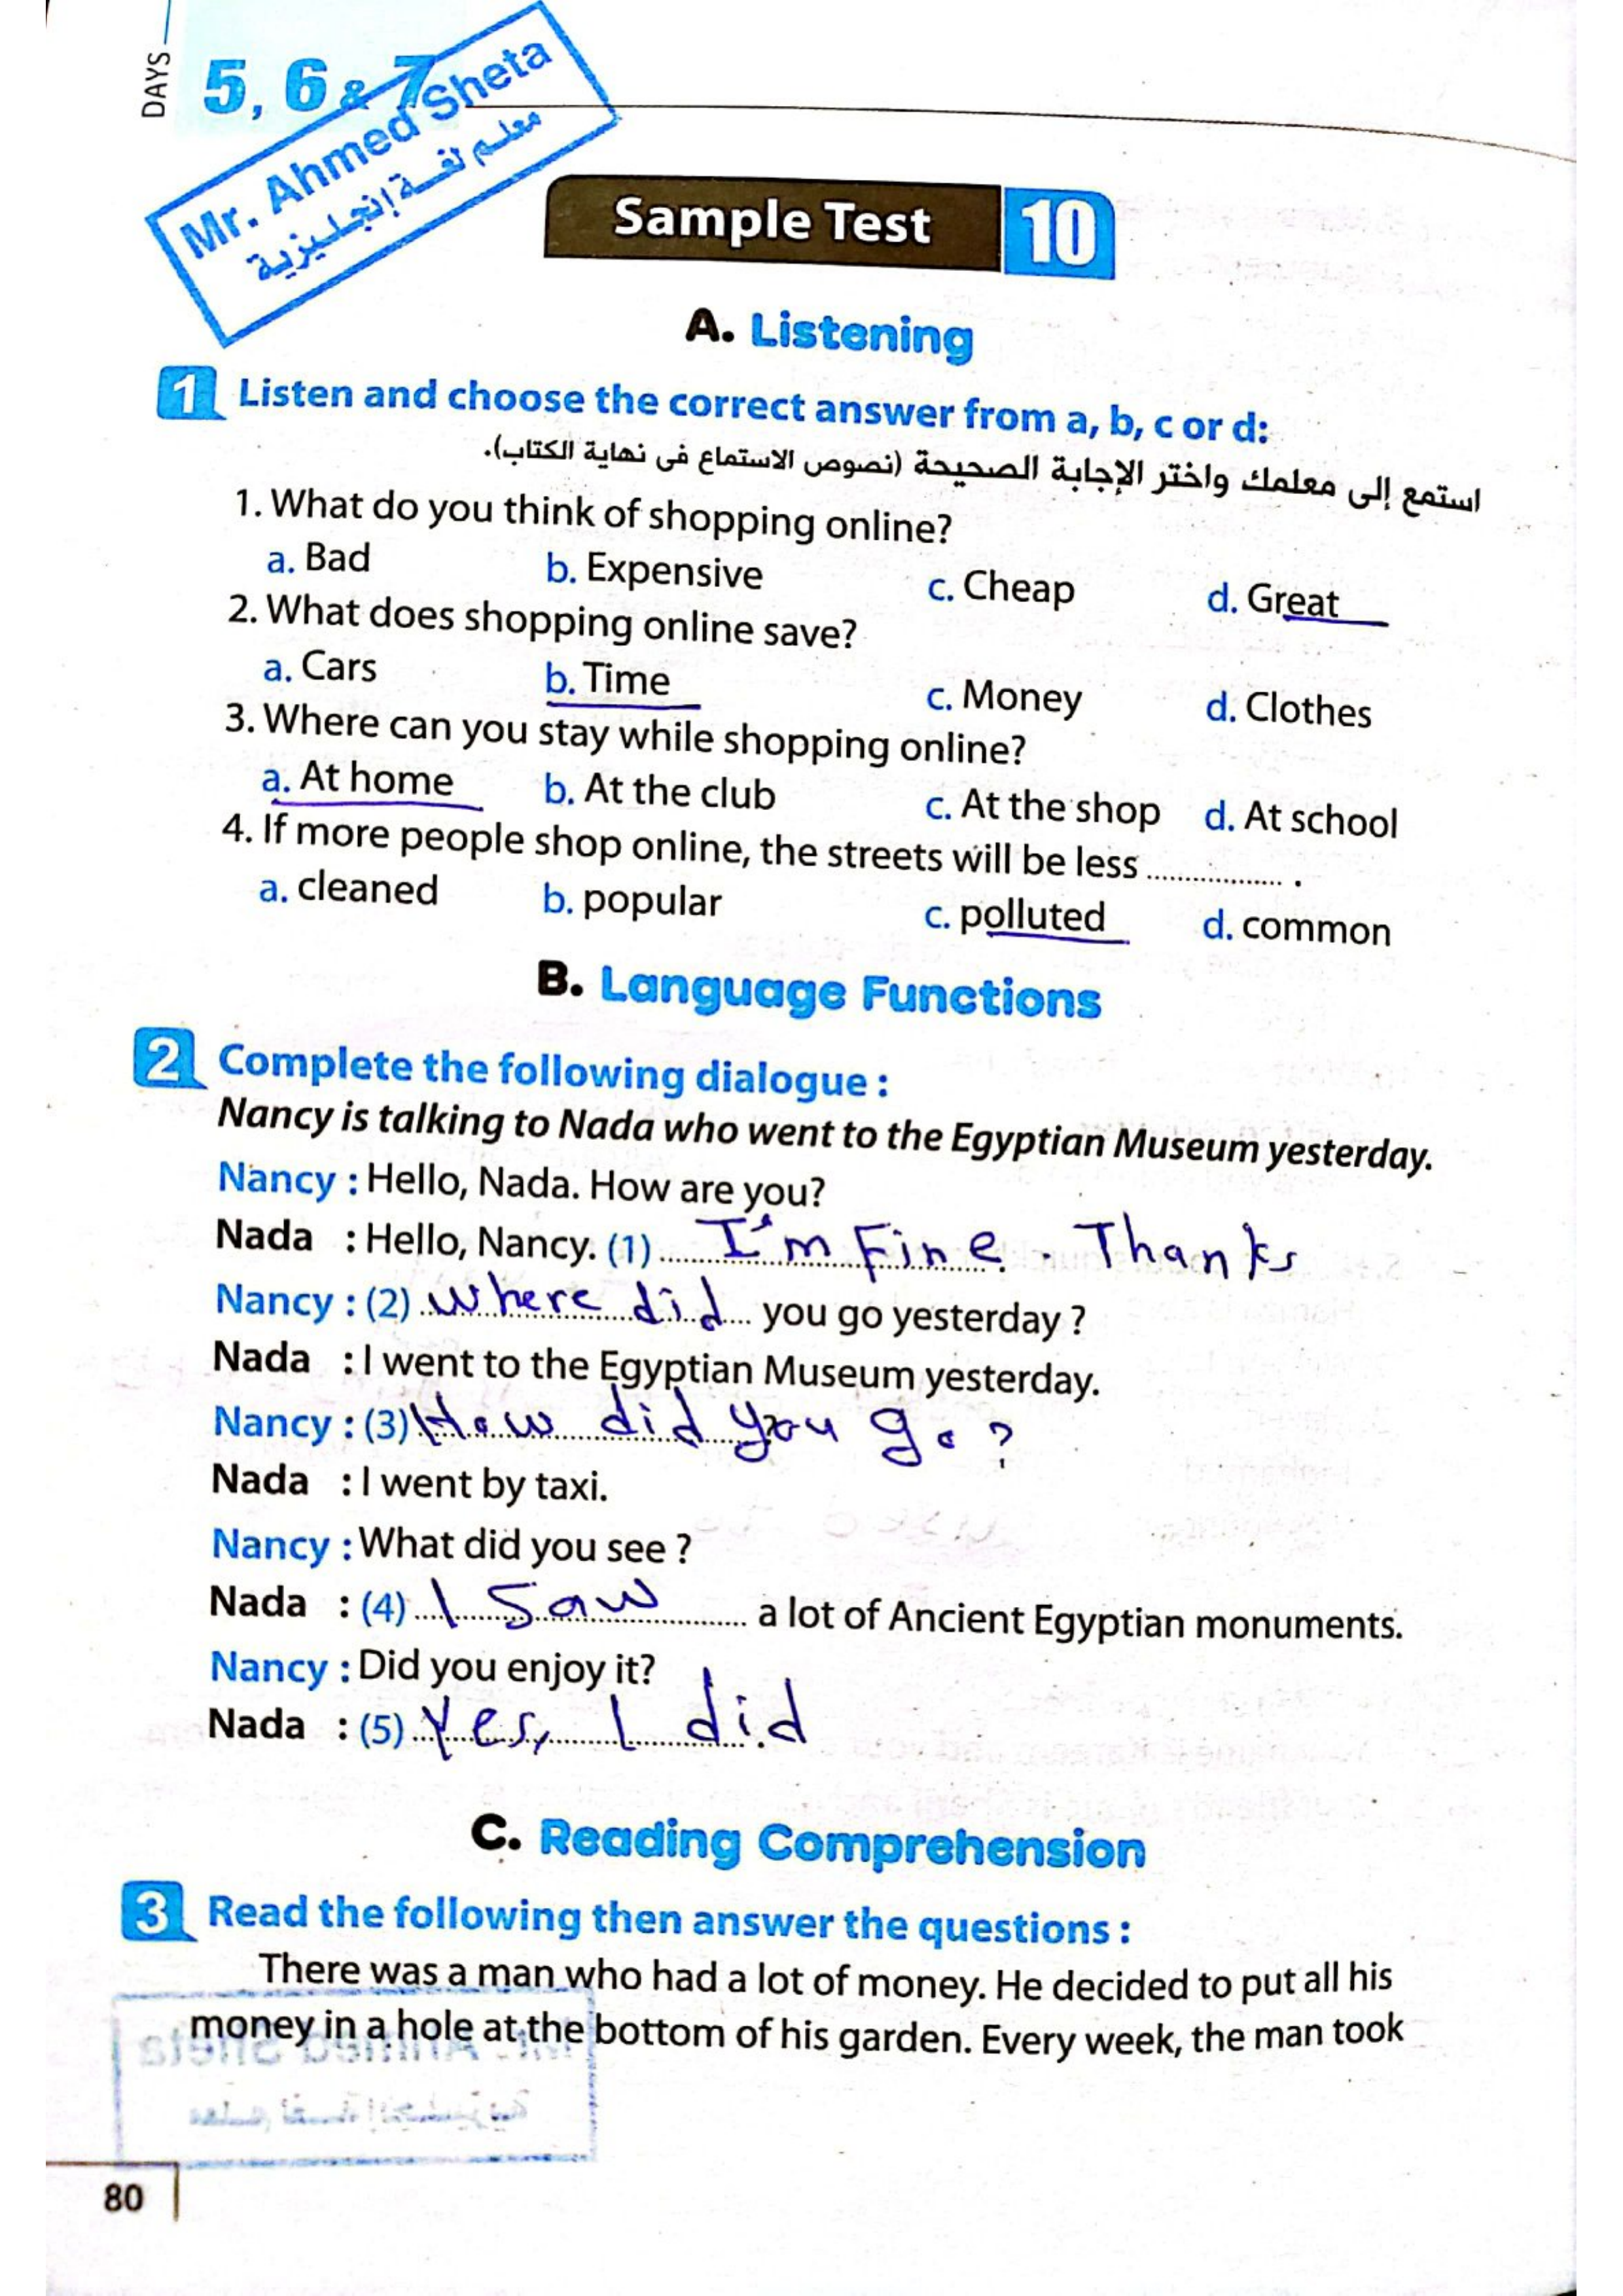 DAYS 5, 6 & 7
Mr. Ahmed Sheta
معلم لغة إنجليزية
Sample Test 10
A. Listening
1 Listen and choose the correct answer from a, b, c or d:
استمع إلى معلمك واختر الإجابة الصحيحة (نصوص الاستماع فى نهاية الكتاب).
1. What do you think of shopping online?
a. Bad b. Expensive c. Cheap d. Great
2. What does shopping online save?
a. Cars b. Time c. Money d. Clothes
3. Where can you stay while shopping online?
a. At home b. At the club c. At the shop d. At school
4. If more people shop online, the streets will be less .................. .
a. cleaned b. popular c. polluted d. common
B. Language Functions
2 Complete the following dialogue :
Nancy is talking to Nada who went to the Egyptian Museum yesterday.
Nancy : Hello, Nada. How are you?
Nada : Hello, Nancy. (1) I'm Fine. Thanks
Nancy : (2) where did you go yesterday ?
Nada : I went to the Egyptian Museum yesterday.
Nancy : (3) How did you go ?
Nada : I went by taxi.
Nancy : What did you see ?
Nada : (4) I Saw a lot of Ancient Egyptian monuments.
Nancy : Did you enjoy it?
Nada : (5) Yes, I did
C. Reading Comprehension
3 Read the following then answer the questions :
There was a man who had a lot of money. He decided to put all his
money in a hole at the bottom of his garden. Every week, the man took
80